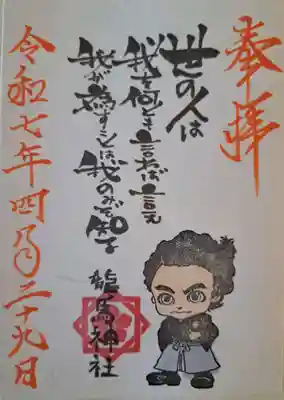 奉拝
世の人は
我を何とも言わば言え
我が為すことは我のみぞ知る
龍馬神社
令和七年四月二十九日